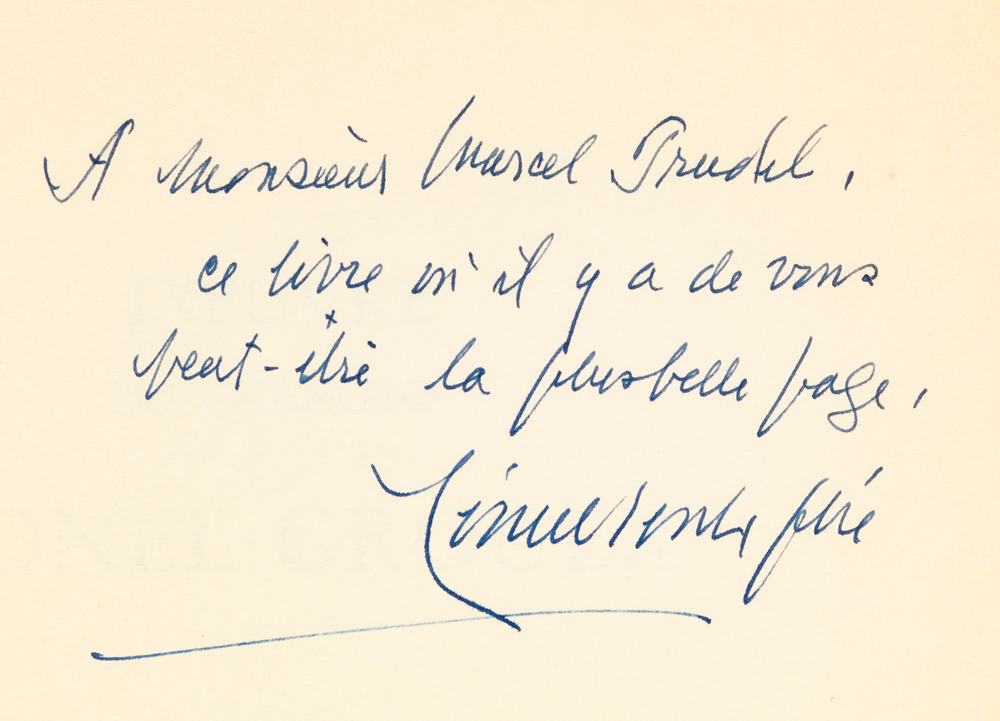 A Monsieur Marcel Trudel,
ce livre où il y a de vous
peut-être la plus belle page,
Lionel Groulx ptre